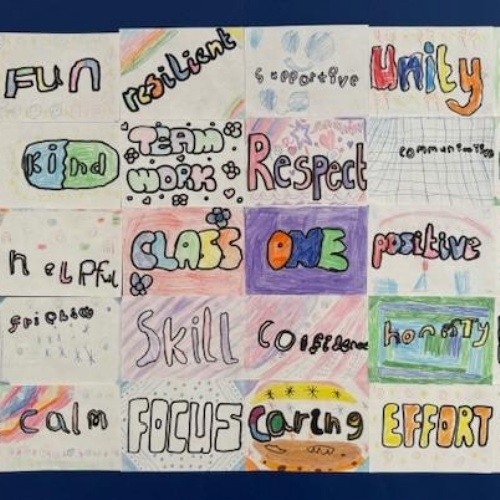 FUN
resilient
supportive
Unity
Kind
TEAM
WORK
Respect
helpful
CLASS
ONE
positive
Skill
honesty
calm
FOCUS
caring
EFFORT